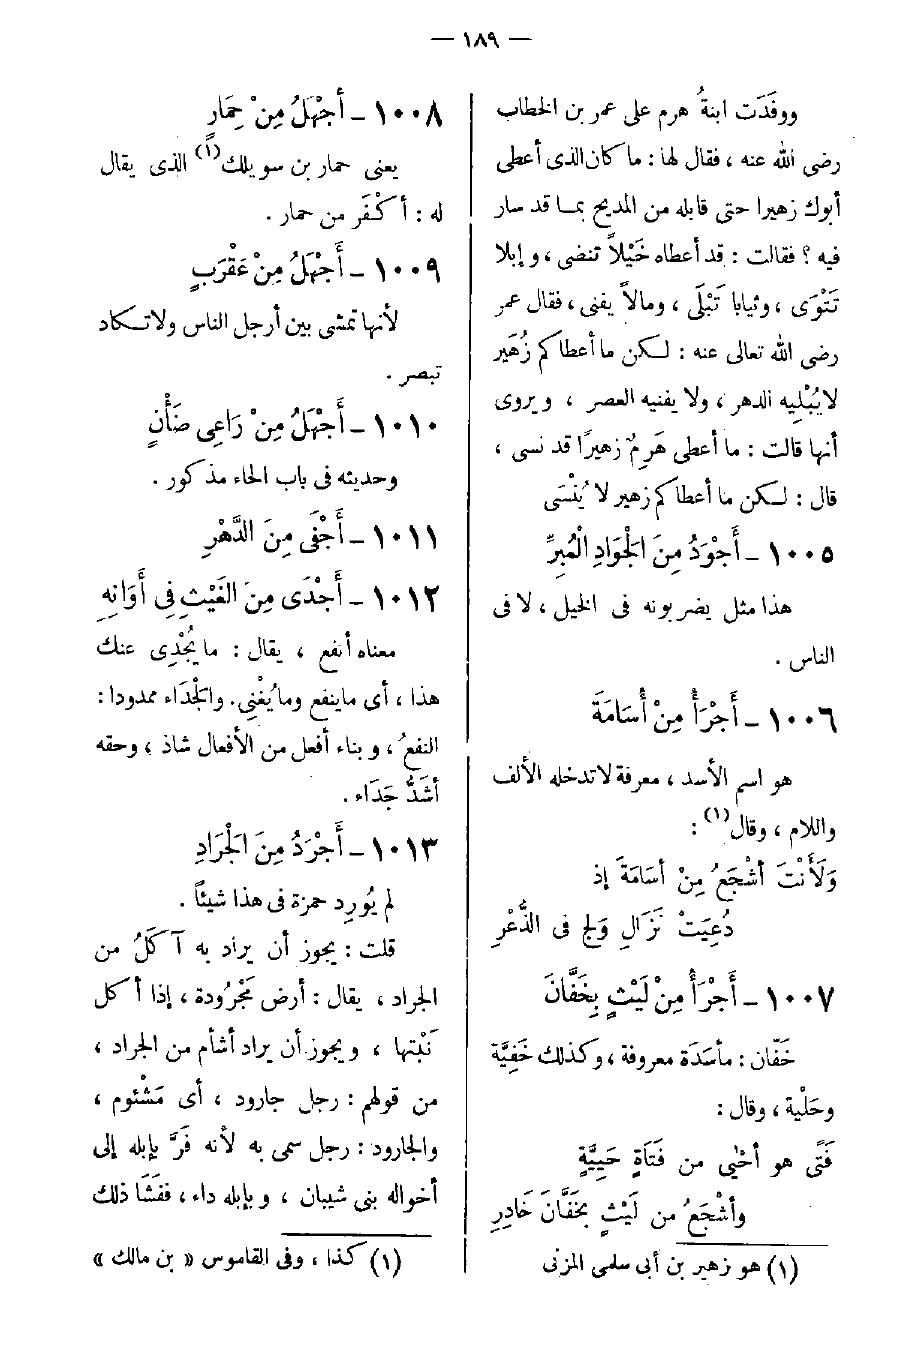 — ١٨٩ —
ووفَدَت ابنةُ هرم على عمر بن الخطاب
رضى الله عنه ، فقال لها : ما كان الذى أعطى
أبوك زهيرا حتى قابله من المديح بمـا قد سار
فيه ؟ فقالت : قد أعطاه خَيْلاً تنضى ، وإبلا
تَتْوَى ، وثيابا تَبْلَى ، ومالاً يفنى ، فقال عمر
رضى الله تعالى عنه : لـكن ما أعطاكم زُهَير
لا يُبْلِيه الدهر ، ولا يفنيه العصر ، ويروى
أنها قالت : ما أعطى هَرِمٌ زهيرًا قد نسى ،
قال : لـكن ما أعطاكم زهير لا يُنْسَى
١٠٠٥ – أَجْوَدُ مِنَ الْجَوَادِ الْمُبِرِّ
هذا مثل يضربونه فى الخيل ، لا فى
الناس .
١٠٠٦ – أَجْرَأُ مِنْ أُسَامَةَ
هو اسم الأسد ، معرفة لا تدخله الألف
واللام ، وقال (١) :
وَلَأَنْتَ أشْجَعُ مِنْ أسَامَةَ إذ
دُعِيَتْ نَزَالِ وَلج فى الذُّعْرِ
١٠٠٧ – أَجْرَأُ مِنْ لَيْثٍ بِخَفَّانَ
خَفّان : مأسَدَة معروفة ، وكذلك خَفِيَّة
وحَلْية ، وقال :
فَتًى هو أحْيٰي من فَتَاةٍ حَيِيَّةٍ
وأشْجَعُ من لَيْثٍ بخَفَّانَ خَادِرِ
(١) هو زهير بن أبى سلمى المزنى
١٠٠٨ – أَجْهَلُ مِنْ حِمَارٍ
يعنى حمار بن سويلك (١) الذى يقال
له : أكْفَر من حمار .
١٠٠٩ – أَجْهَلُ مِنْ عَقْرَبٍ
لأنها تمشى بين أرجل الناس ولا تـكاد
تبصر .
١٠١٠ – أَجْهَلُ مِنْ رَاعِى ضَأْنٍ
وحديثه فى باب الحاء مذكور .
١٠١١ – أَجْفَى مِنَ الدَّهْرِ
١٠١٢ – أَجْدَى مِنَ الْغَيْثِ فِى أَوَانِهِ
معناه أنفع ، يقال : ما يُجْدِى عنك
هذا ، أى ما ينفع وما يُغْنِى. والْجَدَاء ممدودا :
النفعُ ، وبناء أفعل من الأفعال شاذ ، وحقه
أشَدُّ جَدَاء .
١٠١٣ – أَجْرَدُ مِنَ الْجَرَادِ
لم يُورِد حمزة فى هذا شيئاً .
قلت : يجوز أن يراد به آكَلُ من
الجراد ، يقال : أرض مَجْرُودة ، إذا أكل
نَبْتها ، ويجوز أن يراد أشأم من الجراد ،
من قولهم : رجل جارود ، أى مَشْئوم ،
والجارود : رجل سمى به لأنه فَرَّ بإبله إلى
أخواله بنى شيبان ، وبإبله داء ، ففَشَا ذلك
(١) كذا ، وفى القاموس « بن مالك »